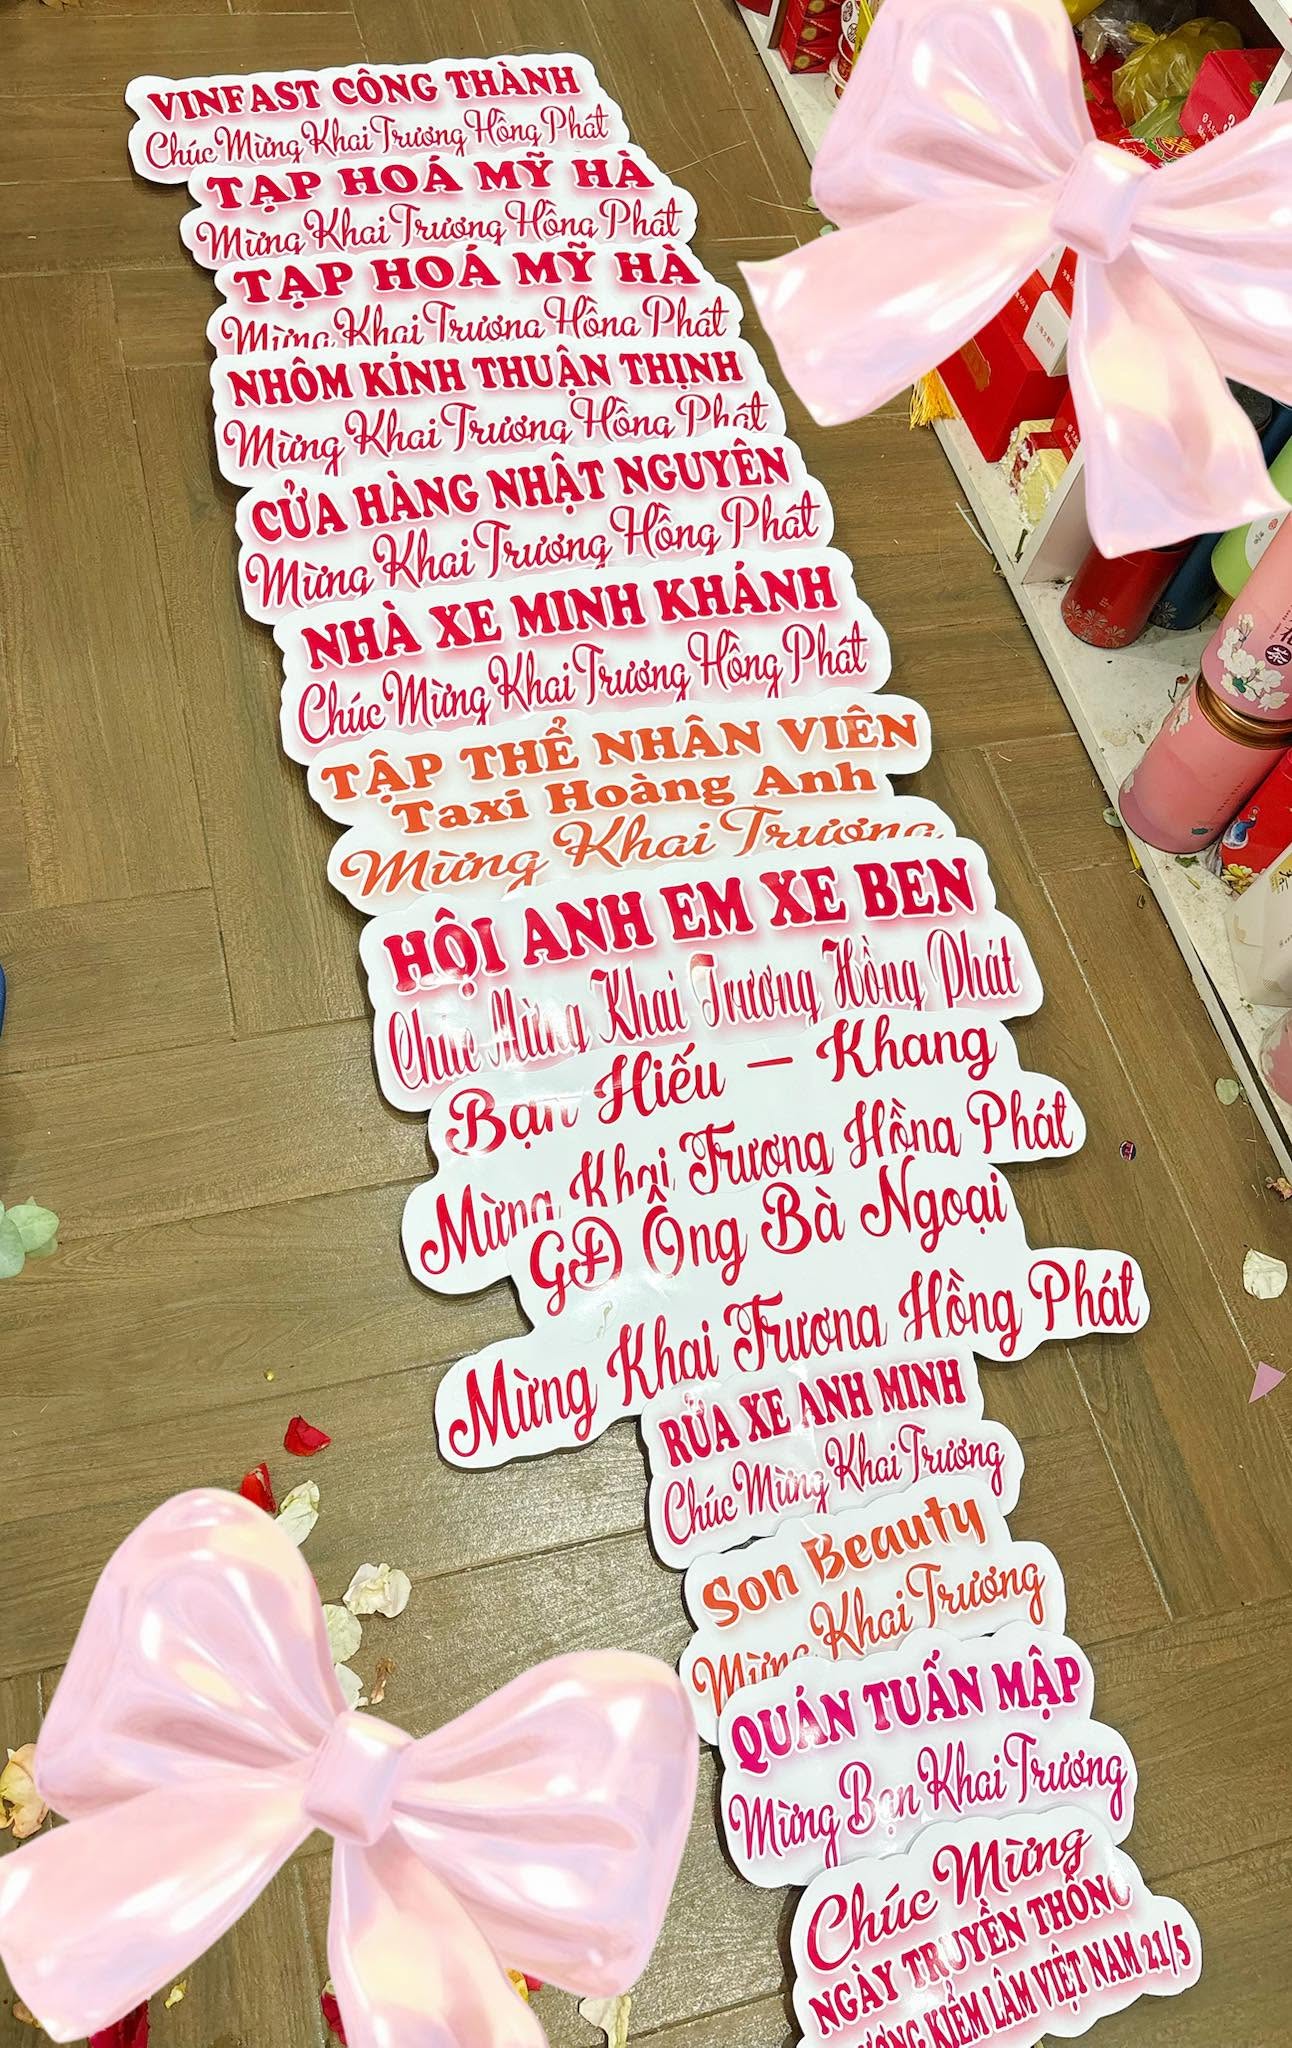 VINFAST CÔNG THÀNH
Chúc Mừng Khai Trương Hồng Phát
TẠP HOÁ MỸ HÀ
Mừng Khai Trương Hồng Phát
TẠP HOÁ MỸ HÀ
Mừng Khai Trương Hồng Phát
NHÔM KÍNH THUẬN THỊNH
Mừng Khai Trương Hồng Phát
CỬA HÀNG NHẬT NGUYÊN
Mừng Khai Trương Hồng Phát
NHÀ XE MINH KHÁNH
Chúc Mừng Khai Trương Hồng Phát
TẬP THỂ NHÂN VIÊN
Taxi Hoàng Anh
Mừng Khai Trương
HỘI ANH EM XE BEN
Chúc Mừng Khai Trương Hồng Phát
Bạn Hiếu - Khang
Mừng Khai Trương Hồng Phát
GĐ Ông Bà Ngoại
Mừng Khai Trương Hồng Phát
RỬA XE ANH MINH
Chúc Mừng Khai Trương
Son Beauty
Mừng Khai Trương
QUÁN TUẤN MẬP
Mừng Bạn Khai Trương
Chúc Mừng
NGÀY TRUYỀN THỐNG
KIỂM LÂM VIỆT NAM 21/5